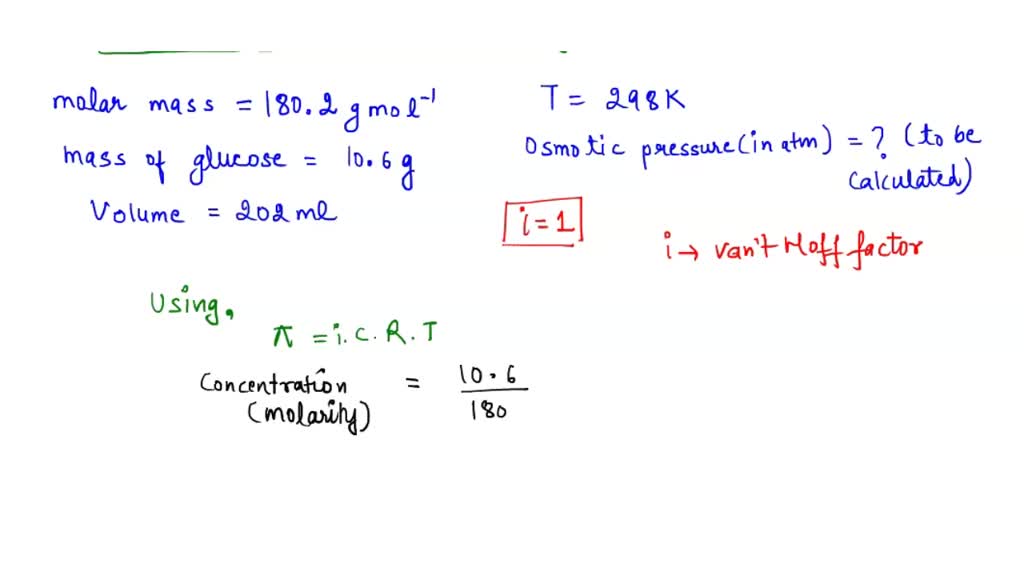 molar mass = 180.2 g mol⁻¹
mass of glucose = 10.6 g
Volume = 202 ml
T = 298K
Osmotic pressure (in atm) = ? (to be
calculated)
i = 1
i → van't Hoff factor
Using,
π = i. C. R. T
Concentration = 10.6 / 180
(molarity)